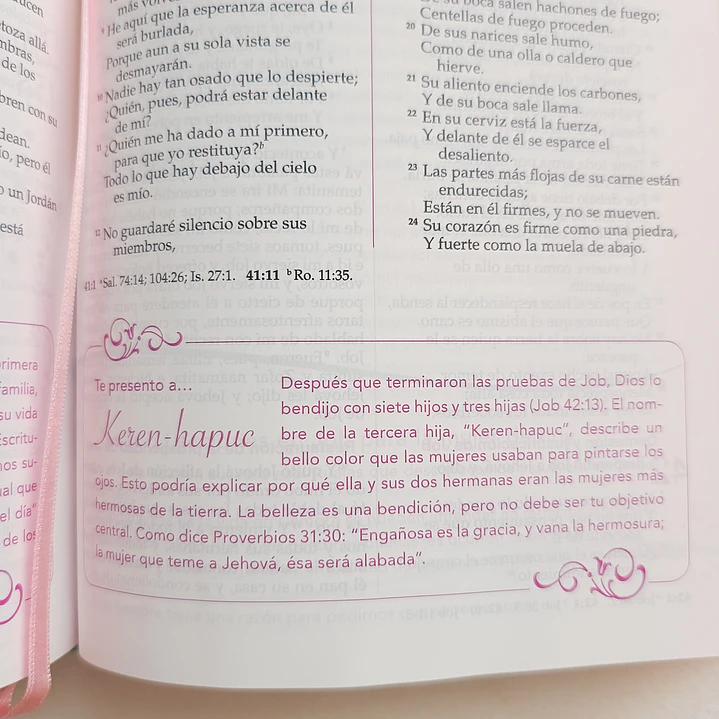 ucen
toza allá.
mbras,
de los
bren con su
dean.
ío, pero él
o un Jordán
está
rimera
familia,
su vida
Escritu-
nos su-
ual que
el día"
de los
más
9 He aquí que la esperanza acerca de él
será burlada,
Porque aun a su sola vista se
desmayarán.
10 Nadie hay tan osado que lo despierte;
¿Quién, pues, podrá estar delante
de mí?
11 ¿Quién me ha dado a mí primero,
para que yo restituya?b
Todo lo que hay debajo del cielo
es mío.
12 No guardaré silencio sobre sus
miembros,
su boca salen hachones de fuego;
Centellas de fuego proceden.
20 De sus narices sale humo,
Como de una olla o caldero que
hierve.
21 Su aliento enciende los carbones,
Y de su boca sale llama.
22 En su cerviz está la fuerza,
Y delante de él se esparce el
desaliento.
23 Las partes más flojas de su carne están
endurecidas;
Están en él firmes, y no se mueven.
24 Su corazón es firme como una piedra,
Y fuerte como la muela de abajo.
41:1 a Sal. 74:14; 104:26; Is. 27:1. 41:11 b Ro. 11:35.
Te presento a...
Keren-hapuc
Después que terminaron las pruebas de Job, Dios lo
bendijo con siete hijos y tres hijas (Job 42:13). El nom-
bre de la tercera hija, "Keren-hapuc", describe un
bello color que las mujeres usaban para pintarse los
ojos. Esto podría explicar por qué ella y sus dos hermanas eran las mujeres más
hermosas de la tierra. La belleza es una bendición, pero no debe ser tu objetivo
central. Como dice Proverbios 31:30: "Engañosa es la gracia, y vana la hermosura;
la mujer que teme a Jehová, ésa será alabada".